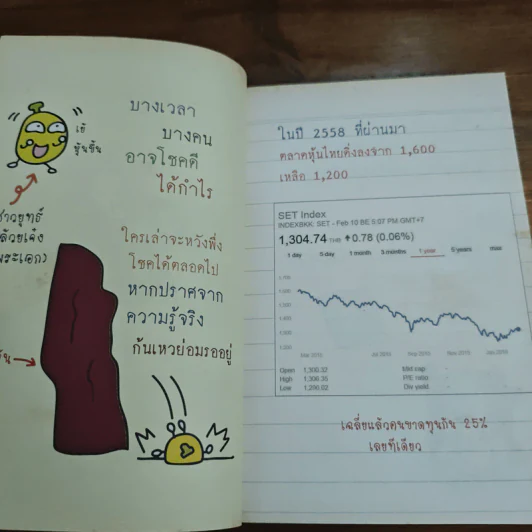 บางเวลา
บางคน
อาจโชคดี
ได้กำไร
เย้
หุ้นขึ้น
ใครเล่าจะหวังพึ่ง
โชคได้ตลอดไป
หากปราศจาก
ความรู้จริง
ก้นเหวย่อมรออยู่
ในปี 2558 ที่ผ่านมา
ตลาดหุ้นไทยดิ่งลงจาก 1,600
เหลือ 1,200
SET Index
INDEXBKK: SET - Feb 10 BE 5:07 PM GMT+7
1,304.74 THB ↑0.78 (0.06%)
1 day 5 day 1 month 3 months 1 year 5 years max
1,700
1,600
1,500
1,400
1,300
1,200
Mar 2015 Jul 2015 Sep 2015 Nov 2015 Jan 2016
Open 1,306.32 Mkt cap
High 1,306.35 P/E ratio
Low Div yield
เฉลี่ยแล้วคนขาดทุนกัน 25%
เลยทีเดียว